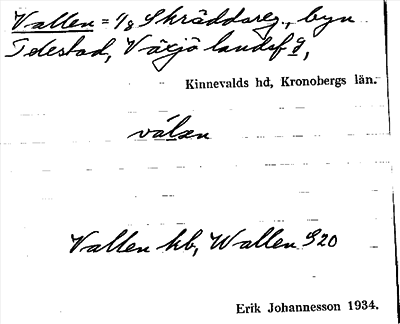 Vallen = 1/8 Skräddareg., byn
Telestad, Växjö landsf g,
Kinnevalds hd, Kronobergs län.
válən
Vallen hb, Wallen S20
Erik Johannesson 1934.